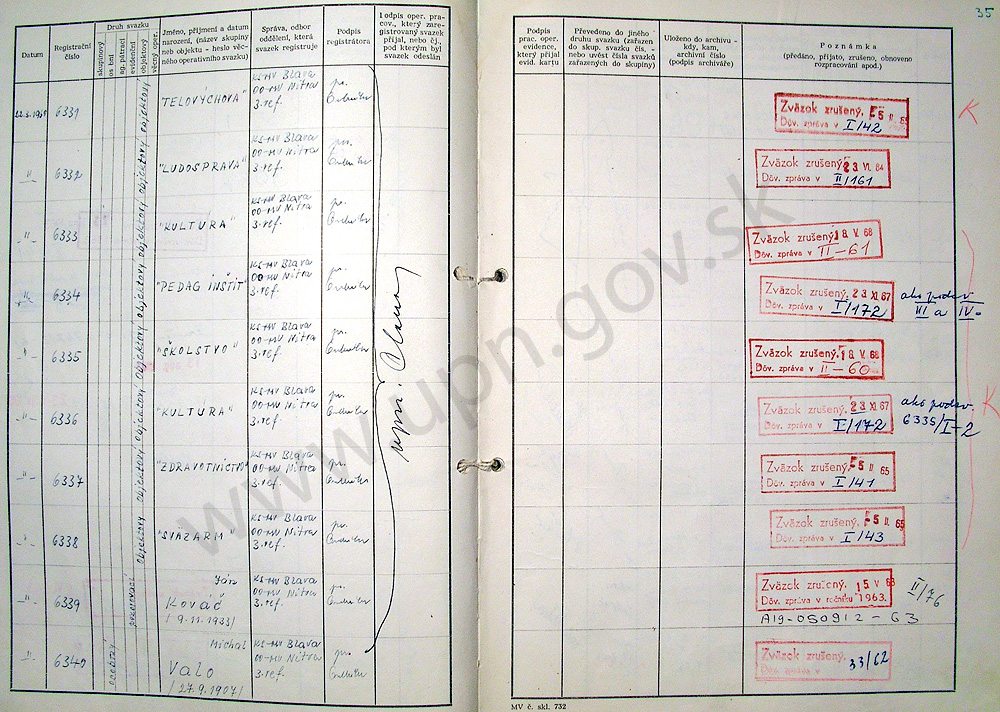 35
Datum
Registrační číslo
Druh svazku
skupinový
osobní
ag. pátrací
evidenční
objektový
věcný oper.
Jméno, příjmení a datum
narození, (název skupiny
neb objektu - heslo věc-
ného operativního svazku)
Správa, odbor
oddělení, která
svazek registruje
Podpis
registrátora
Podpis oper. pra-
cov., který zare-
gistrovaný svazek
přijal, nebo čj.,
pod kterým byl
svazek odeslán
Podpis
prac. oper.
evidence,
který přijal
evid. kartu
Převedeno do jiného
druhu svazku (zařazen
do skup. svazku čís.
nebo uvést čísla svazků
zařazených do skupiny)
Uloženo do archivu -
kdy, kam,
archivní číslo
(podpis archiváře)
Poznámka
(předáno, přijato, zrušeno, obnoveno
rozpracování apod.)
6331 objektový "TELOVÝCHOVA" KS-MV Blava
00-MV Nitra
3.ref.
Zväzok zrušený. 5 II. 65
Dôv. zpráva v I/42
K
-"- 6332 objektový "ĽUDOSPRÁVA" KS-MV Blava
00-MV Nitra
3.ref.
Zväzok zrušený 23 VI. 64
Dôv. zpráva v II/161
-"- 6333 objektový "KULTÚRA" KS-MV Blava
00-MV Nitra
3.ref.
Zväzok zrušený 8 V. 68
Dôv. zpráva v II-61
-"- 6334 objektový "PEDAG INŠTIT" KS-MV Blava
00-MV Nitra
3.ref.
Zväzok zrušený. 23 XI. 67
Dôv. zpráva v I/172
ako podsv
III a IV-
-"- 6335 objektový "ŠKOLSTVO" KS-MV Blava
00-MV Nitra
3.ref.
Zväzok zrušený. 8 V. 68
Dôv. zpráva v II-60
-"- 6336 objektový "KULTÚRA" KS-MV Blava
00-MV Nitra
3.ref.
Zväzok zrušený. 23 XI. 67
Dôv. zpráva v I/172
ako podsv.
6335/I-2
K
-"- 6337 objektový "ZDRAVOTNÍCTVO" KS-MV Blava
00-MV Nitra
3.ref.
Zväzok zrušený. 5 II. 65
Dôv. zpráva v I/41
-"- 6338 objektový "SVÄZARM" KS-MV Blava
00-MV Nitra
3.ref.
Zväzok zrušený. 5 II. 65
Dôv. zpráva v I/43
-"- 6339 Ján
Kováč
/9.11.1933/
KS-MV Blava
00-MV Nitra
3.ref.
Zväzok zrušený. 15 V 63
Dôv. zpráva v ročníku 1963.
II/76
A19-050912-63
-"- 6340 osobný Michal
Valo
/27.9.1907/
KS-MV Blava
00-MV Nitra
3.ref.
Zväzok zrušený.
Dôv. zpráva v 33/62
MV č. skl. 732
www.upn.gov.sk